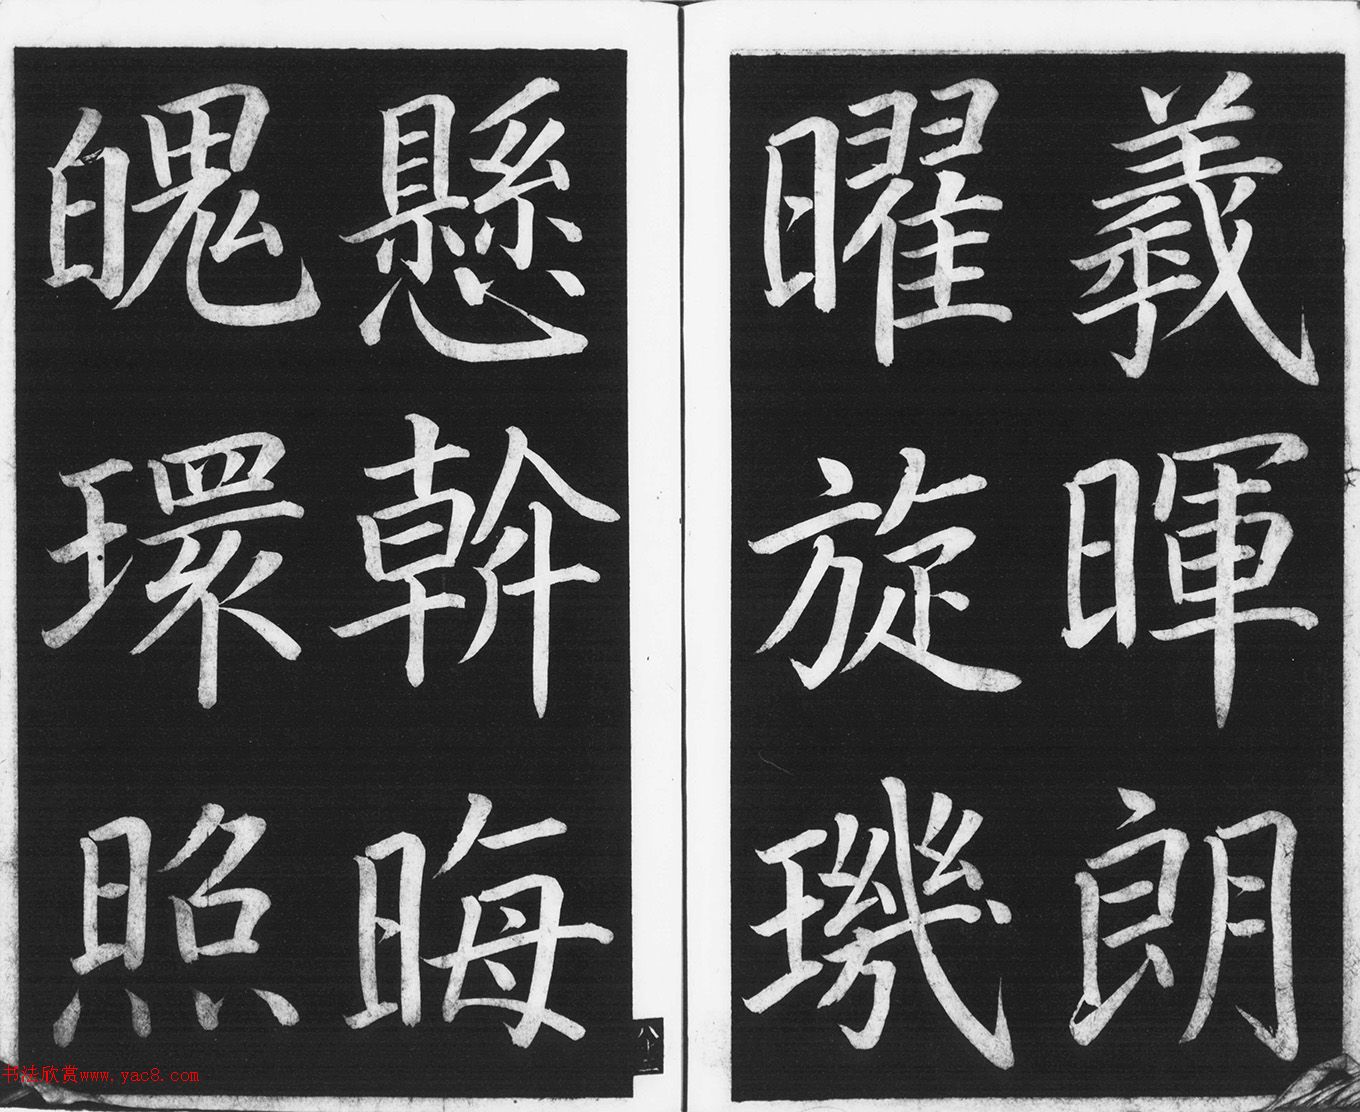 羲暉朗
曜旋璣
懸斡晦
魄環照
书法欣赏www.yac8.com